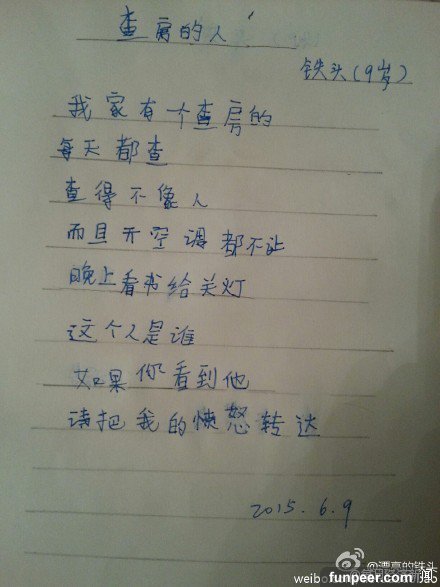 查房的人
铁头(9岁)
我家有个查房的
每天都查
查得不像人
而且开空调都不让
晚上看书给关灯
这个人是谁
如果你看到他
请把我的愤怒转达
2015.6.9
@漂亮的铁头
funpeer.com